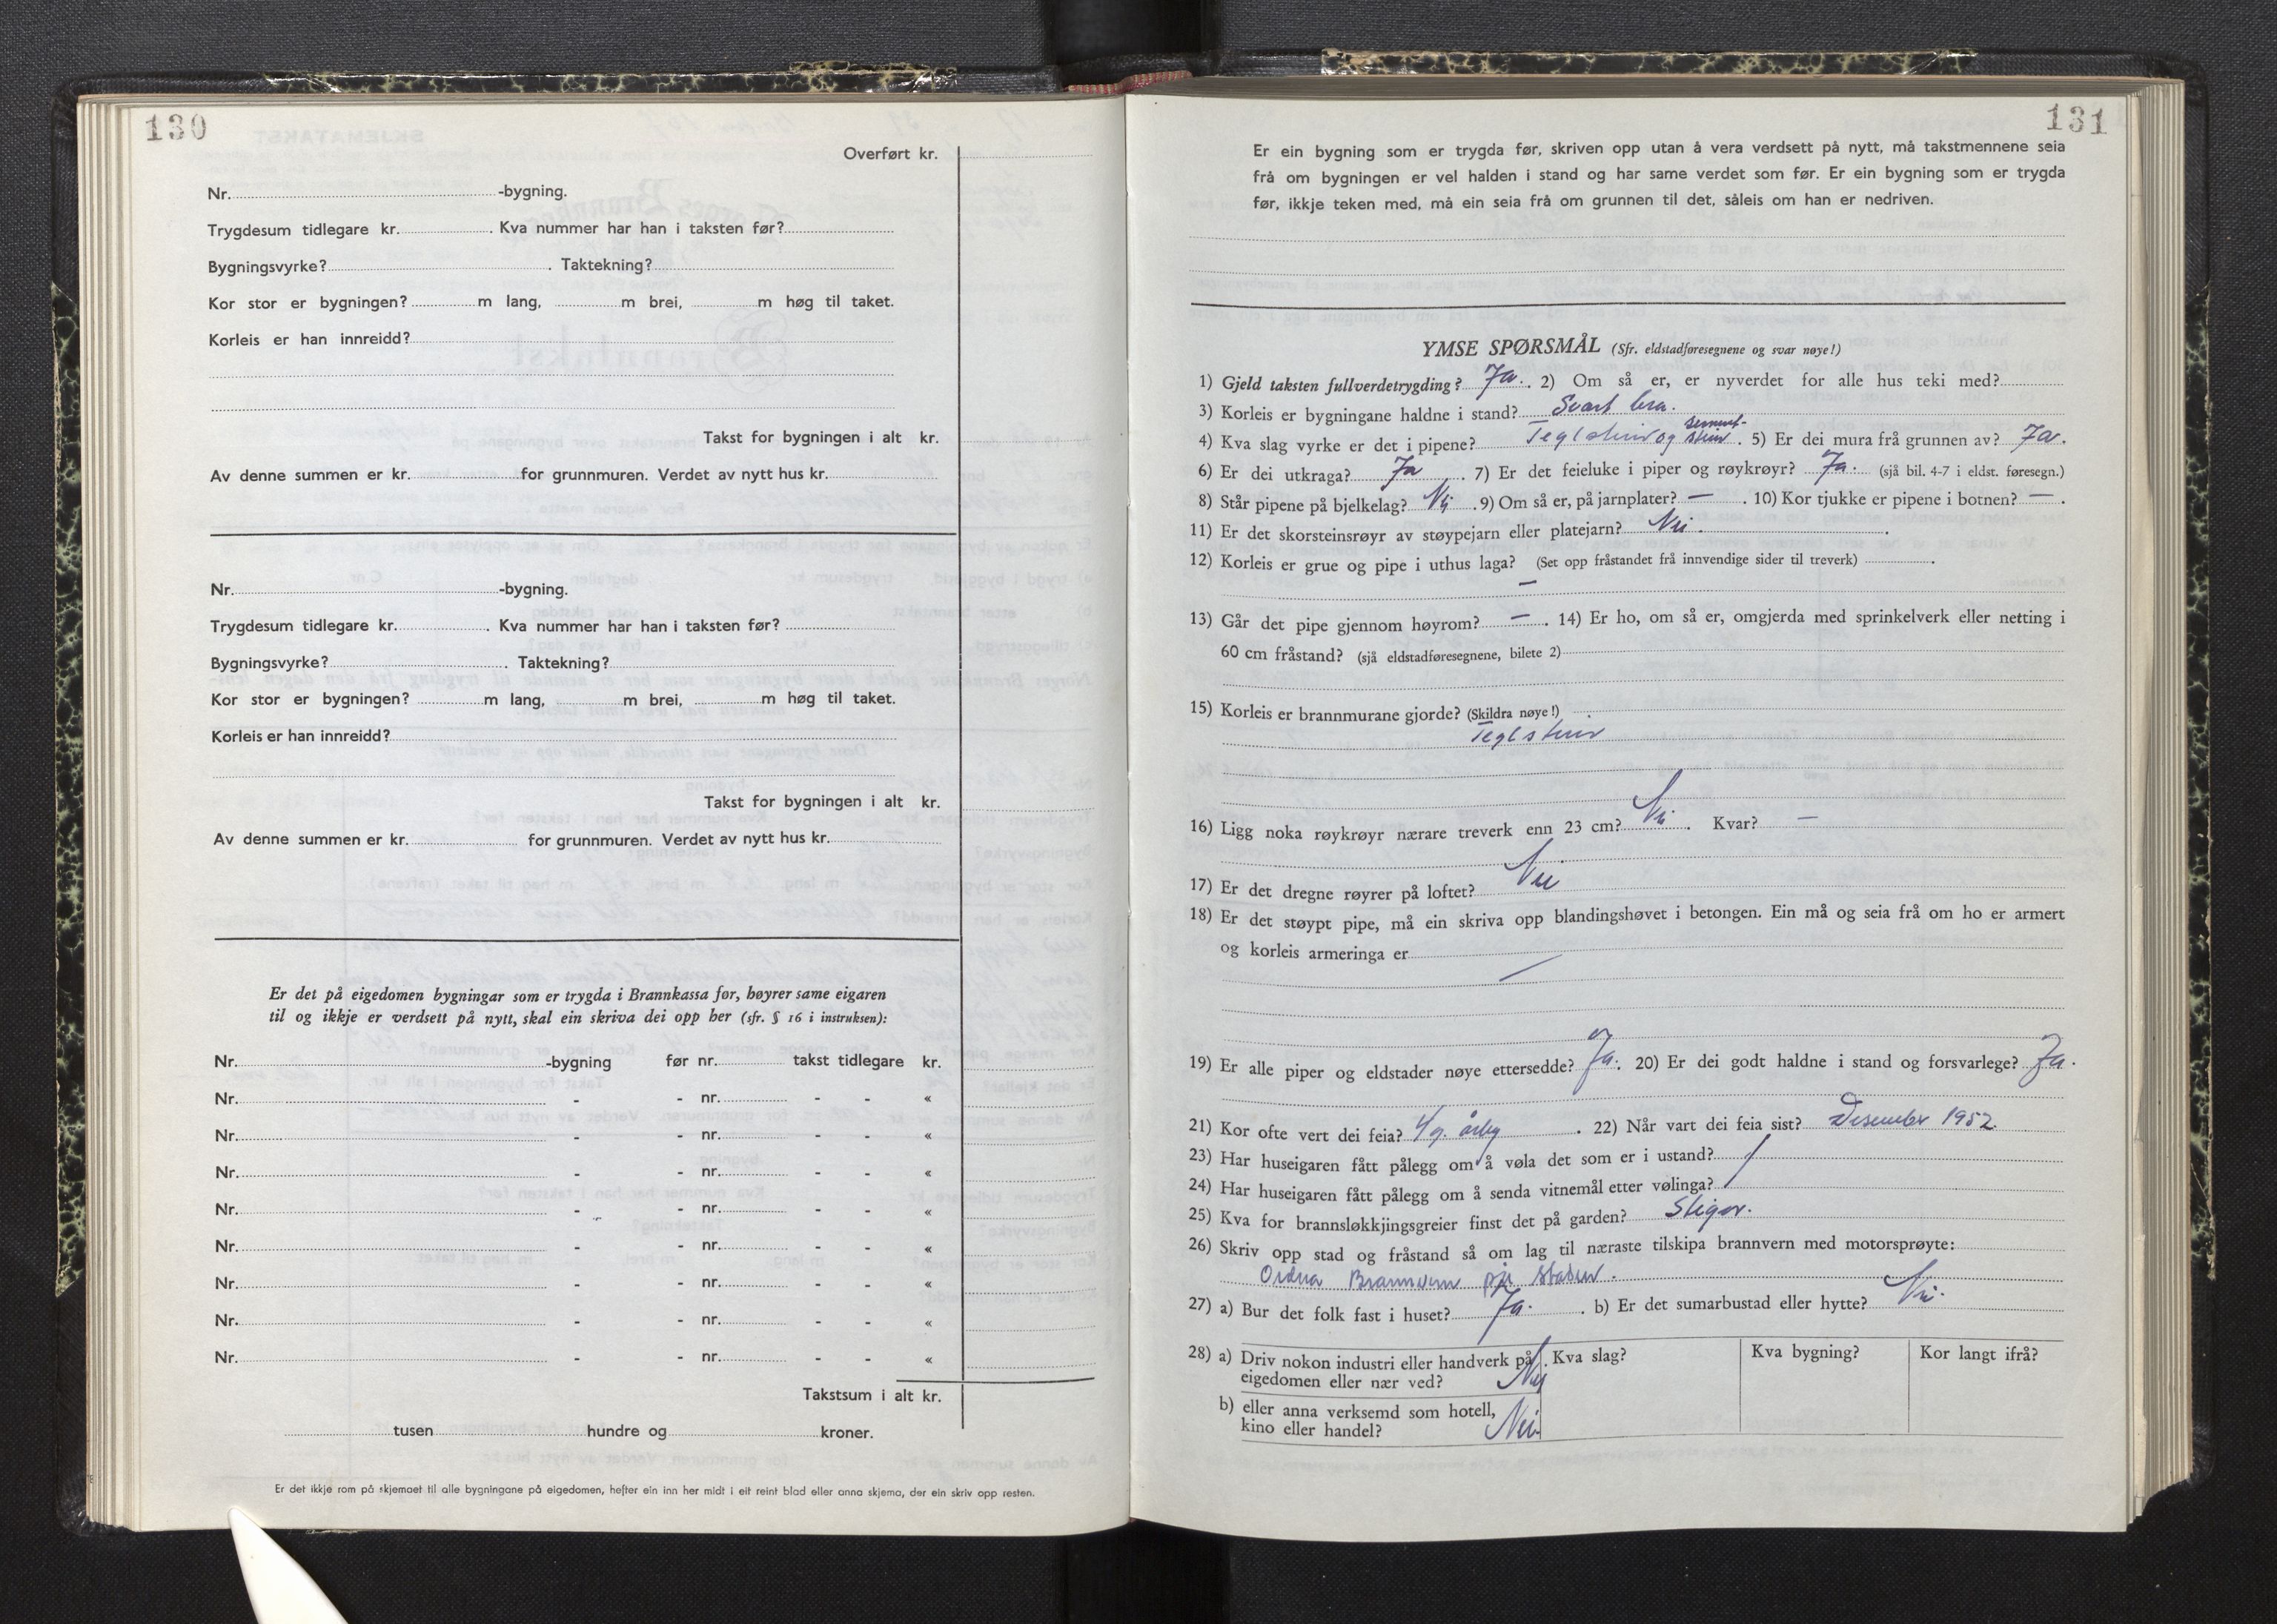 130
Overført kr.
Nr. -bygning.
Trygdesum tidlegare kr. . Kva nummer har han i taksten før?
Bygningsvyrke? . Taktekning?
Kor stor er bygningen? m lang, m brei, m høg til taket.
Korleis er han innreidd?
Takst for bygningen i alt kr.
Av denne summen er kr. for grunnmuren. Verdet av nytt hus kr.
Nr. -bygning.
Trygdesum tidlegare kr. . Kva nummer har han i taksten før?
Bygningsvyrke? . Taktekning?
Kor stor er bygningen? m lang, m brei, m høg til taket.
Korleis er han innreidd?
Takst for bygningen i alt kr.
Av denne summen er kr. for grunnmuren. Verdet av nytt hus kr.
Er det på eigedomen bygningar som er trygda i Brannkassa før, høyrer same eigaren
til og ikkje er verdsett på nytt, skal ein skriva dei opp her (sfr. § 16 i instruksen):
Nr. -bygning før nr. takst tidlegare kr.
Nr. - - nr. - - «
Nr. - - nr. - - «
Nr. - - nr. - - «
Nr. - - nr. - - «
Nr. - - nr. - - «
Nr. - - nr. - - «
Nr. - - nr. - - «
Nr. - - nr. - - «
Takstsum i alt kr.
tusen hundre og kroner.
Er det ikkje rom på skjemaet til alle bygningane på eigedomen, hefter ein inn her midt i eit reint blad eller anna skjema, der ein skriv opp resten.
131
Er ein bygning som er trygda før, skriven opp utan å vera verdsett på nytt, må takstmennene seia
frå om bygningen er vel halden i stand og har same verdet som før. Er ein bygning som er trygda
før, ikkje teken med, må ein seia frå om grunnen til det, såleis om han er nedriven.
YMSE SPØRSMÅL (Sfr. eldstadføresegnene og svar nøye!)
1) Gjeld taksten fullverdetrygding? Ja. . 2) Om så er, er nyverdet for alle hus teki med?
3) Korleis er bygningane haldne i stand? Svært bra.
4) Kva slag vyrke er det i pipene? Teglstein og sement-stein . 5) Er dei mura frå grunnen av? Ja.
6) Er dei utkraga? Ja . 7) Er det feieluke i piper og røykrøyr? Ja. (sjå bil. 4-7 i eldst. føresegn.)
8) Står pipene på bjelkelag? Nei . 9) Om så er, på jarnplater? — . 10) Kor tjukke er pipene i botnen? — .
11) Er det skorsteinsrøyr av støypejarn eller platejarn? Nei . .
12) Korleis er grue og pipe i uthus laga? (Set opp fråstandet frå innvendige sider til treverk) .
—
13) Går det pipe gjennom høyrom? — . 14) Er ho, om så er, omgjerda med sprinkelverk eller netting i
60 cm fråstand? (sjå eldstadføresegnene, bilete 2)
15) Korleis er brannmurane gjorde? (Skildra nøye!)
Teglstein
16) Ligg noka røykrøyr nærare treverk enn 23 cm? Nei . Kvar? —
17) Er det dregne røyrer på loftet? Nei
18) Er det støypt pipe, må ein skriva opp blandingshøvet i betongen. Ein må og seia frå om ho er armert
og korleis armeringa er
—
19) Er alle piper og eldstader nøye ettersedde? Ja. . 20) Er dei godt haldne i stand og forsvarlege? Ja.
21) Kor ofte vert dei feia? 4 g. årleg . 22) Når vart dei feia sist? Desember 1952
23) Har huseigaren fått pålegg om å vøla det som er i ustand? /
24) Har huseigaren fått pålegg om å senda vitnemål etter vølinga?
25) Kva for brannsløkkjingsgreier finst det på garden? Stigar.
26) Skriv opp stad og fråstand så om lag til næraste tilskipa brannvern med motorsprøyte:
Ordna Brannvern på staden.
27) a) Bur det folk fast i huset? Ja. . b) Er det sumarbustad eller hytte? Nei.
28) a) Driv nokon industri eller handverk på eigedomen eller nær ved? Nei Kva slag? Kva bygning? Kor langt ifrå?
b) eller anna verksemd som hotell,
kino eller handel? Nei.